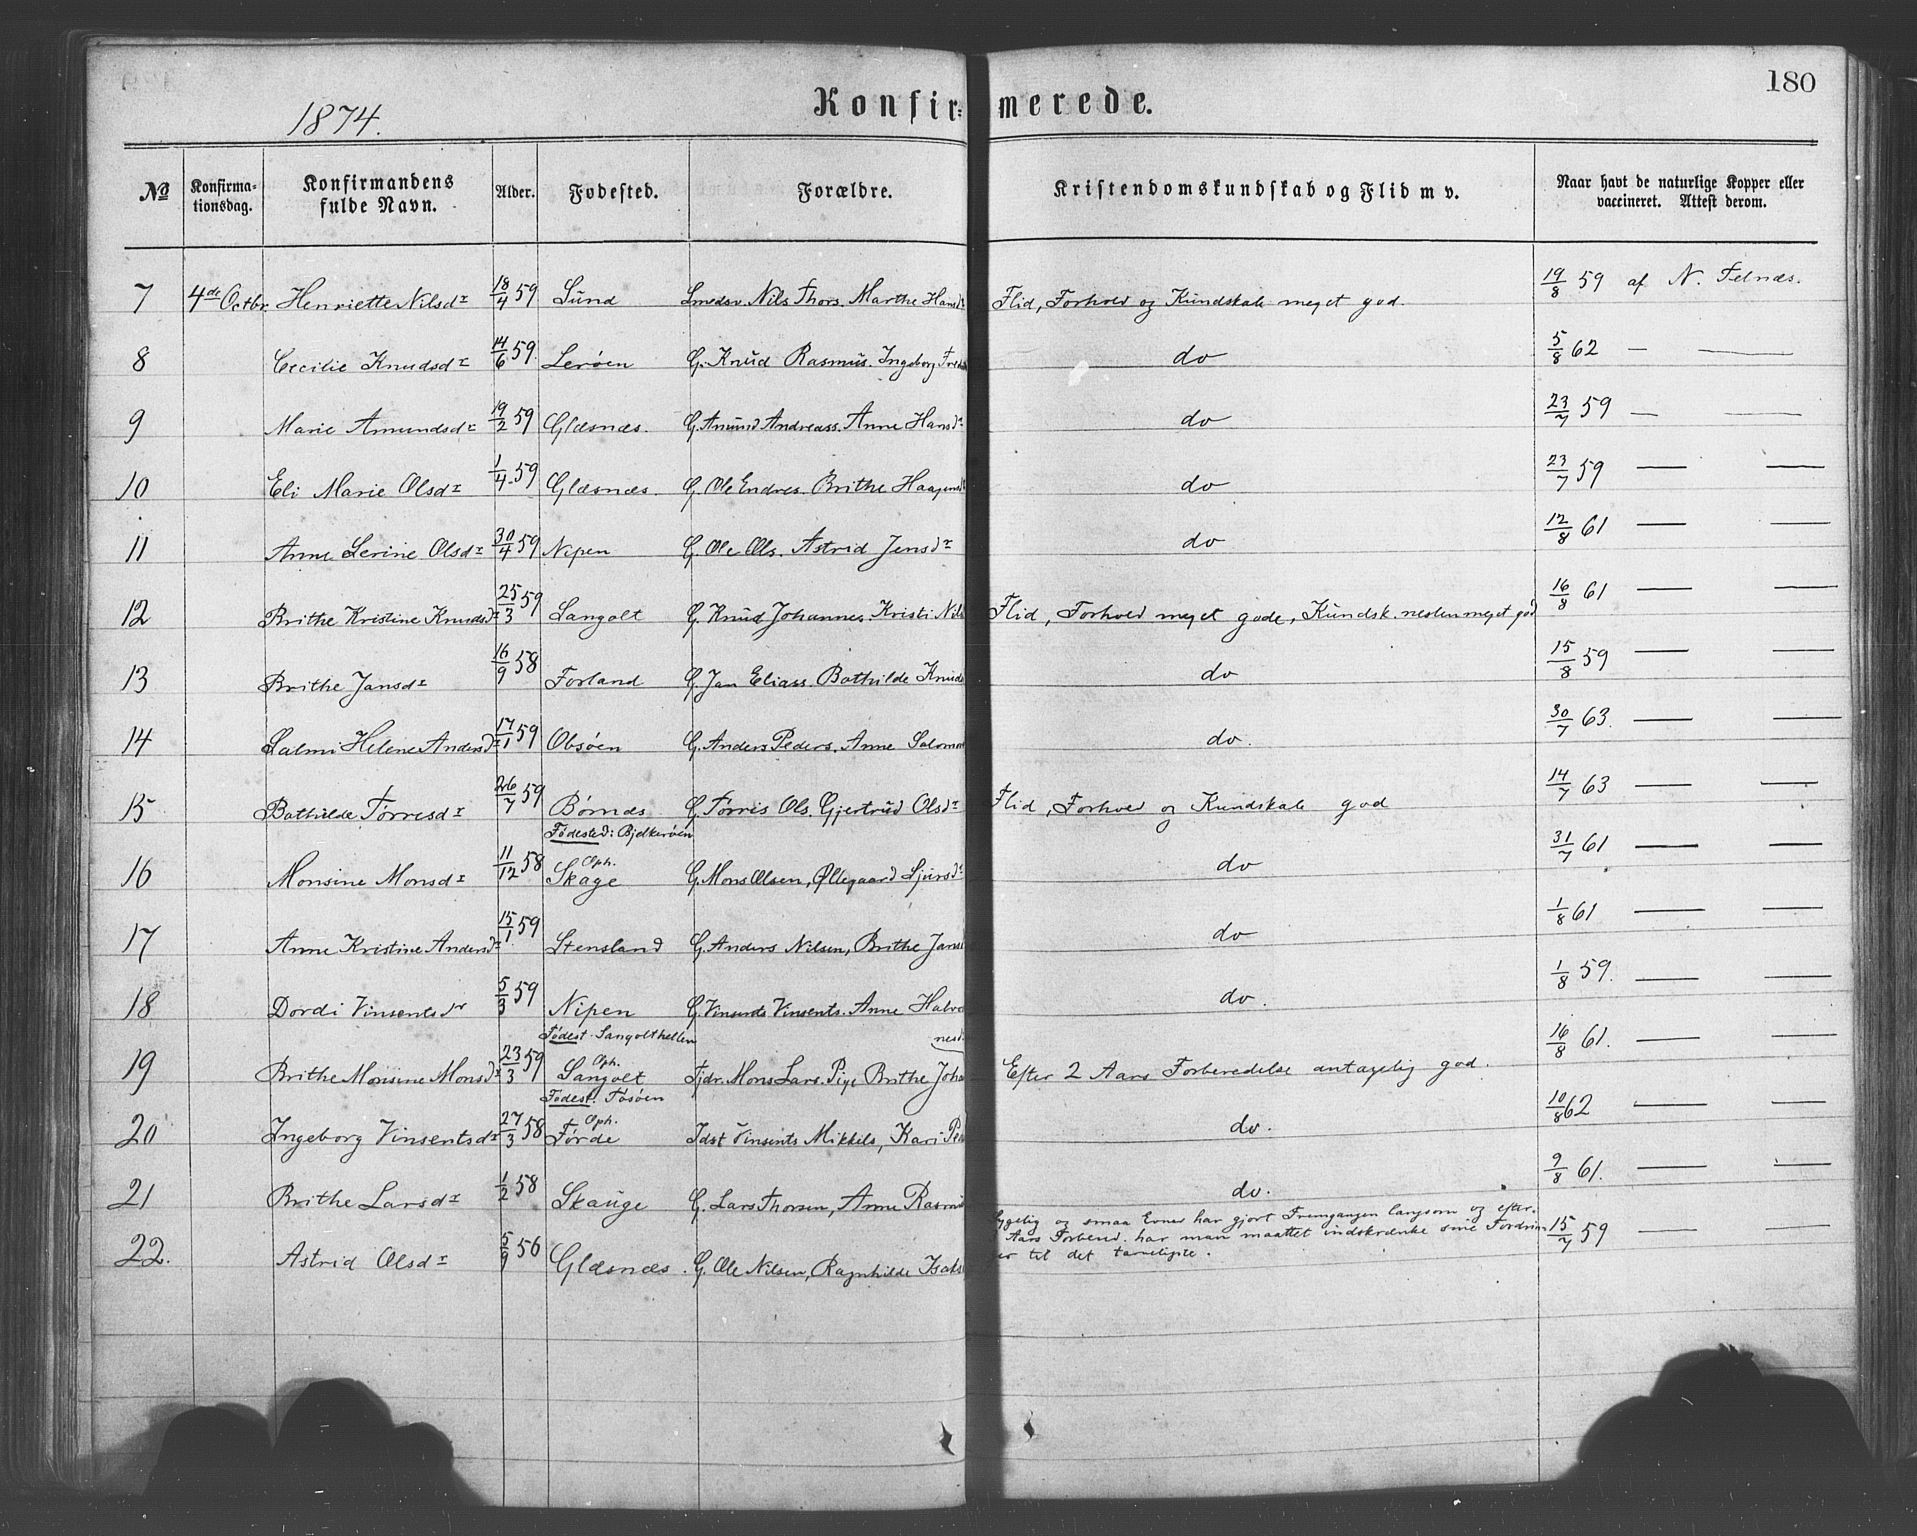 180
1874.
Konfir= merede.
No Konfirma-tionsdag. Konfirmandens fulde Navn. Alder. Fødested. Forældre. Kristendomskundskab og Flid m v. Naar havt de naturlige Kopper eller vaccineret. Attest derom.
7 4de Octbr. Henriette Nilsdr 18/4 59 Lund Nils Thors. Marthe Hansdr Flid, Forhold og Kundskab meget god. 19/8 59 af N. Telnæs.
8 Cecilie Knudsdr 14/6 59. Lerøen G. Knud Rasmus. Ingeborg do 5/8 62 — —
9 Marie Amundsdr 19/2 59 Glæsnæs. G. Amund Andreass. Anne Hansdr do 23/7 59 — —
10 Eli Marie Olsdr 1/4 59 Glæsnæs. G. Ole Endres. Brithe do 23/7 59 — —
11 Anne Serine Olsdr 30/4 59 Nipen G. Ole Ols. Astrid Jensdr do 12/8 61 — —
12 Brithe Kristine Knudsdr 25/3 59 Sangolt G. Knud Johannes. Kristi Nils Flid, Forhold meget gode, Kundsk. nesten meget god 16/8 61 — —
13 Brithe Jansdr 16/9 58 Forland G. Jan Eliass. Bothilde Knuds do 15/8 59 — —
14 Salmi Helene Andersdr 17/1 59 Obsøen G. Anders Peders. Anne Salomo do. 30/7 63. — —
15 Bothilde Tørresdr 26/7 59 Børnæs G. Tørris Ols. Gjertrud Olsdr Flid, Forhold og Kundskab god 14/7 63 — —
Fødested: Bjelkerøen
16 Monsine Monsdr 11/12 58 Oph. Skage G. Mons Olsen, Øllegaard Sjursdr do 31/7 61 — —
17 Anne Kristine Andersdr 15/1 59 Stensland G. Anders Nilsen, Brithe Jans do 1/8 61 — —
18 Dordi Vinsentsdr 5/3 59 Nipen G. Vinsents Vinsents. Anne Halvo do. 1/8 59. — —
Fødest. Sangolthellen nesd
19 Brithe Monsine Monsdr 23/3 59 Oph. Sangolt Fjdr. Mons Lars. Pige Brithe Joha Efter 2 Aars Forberedelse antagelig god. 16/8 61. — —
Fødest. Tøsøen
20 Ingeborg Vinsentsdr 27/3 58 Oph. Førde Idst Vinsents Mikkels, Kari Pe do. 10/8 62 — —
21 Brithe Larsdr 1/2 58 Skauge G. Lars Thorsen, Anne Rasmu do. 9/8 61. — —
22. Astrid Olsdr 5/9 56 Glæsnæs. G. Ole Nilsen, Ragnhilde Isaks og smaa Evner har gjort Fremgangen langsom og efter 15/7 59 — —
Aars Forbered. har man maattet indskrænke sine Fordrin
er til det tarveligste.